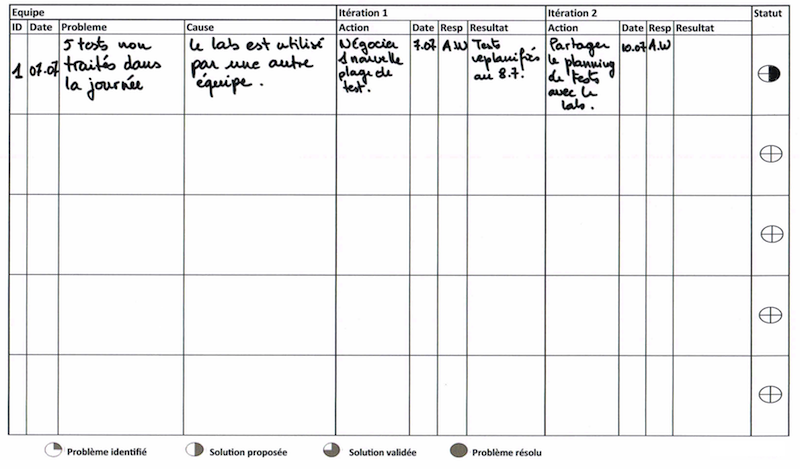 Equipe Itération 1 Itération 2 Statut
ID Date Probleme Cause Action Date Resp Resultat Action Date Resp Resultat
1 07.07
5 tests non
traités dans
la journée
Le lab est utilisé
par une autre
équipe.
Négocier
1 nouvelle
plage de
test.
7.07 A.W
Tests
replanifiés
au 8.7.
Partager
le planning
de tests
avec le
lab.
10.07 A.W
Problème identifié Solution proposée Solution validée Problème résolu